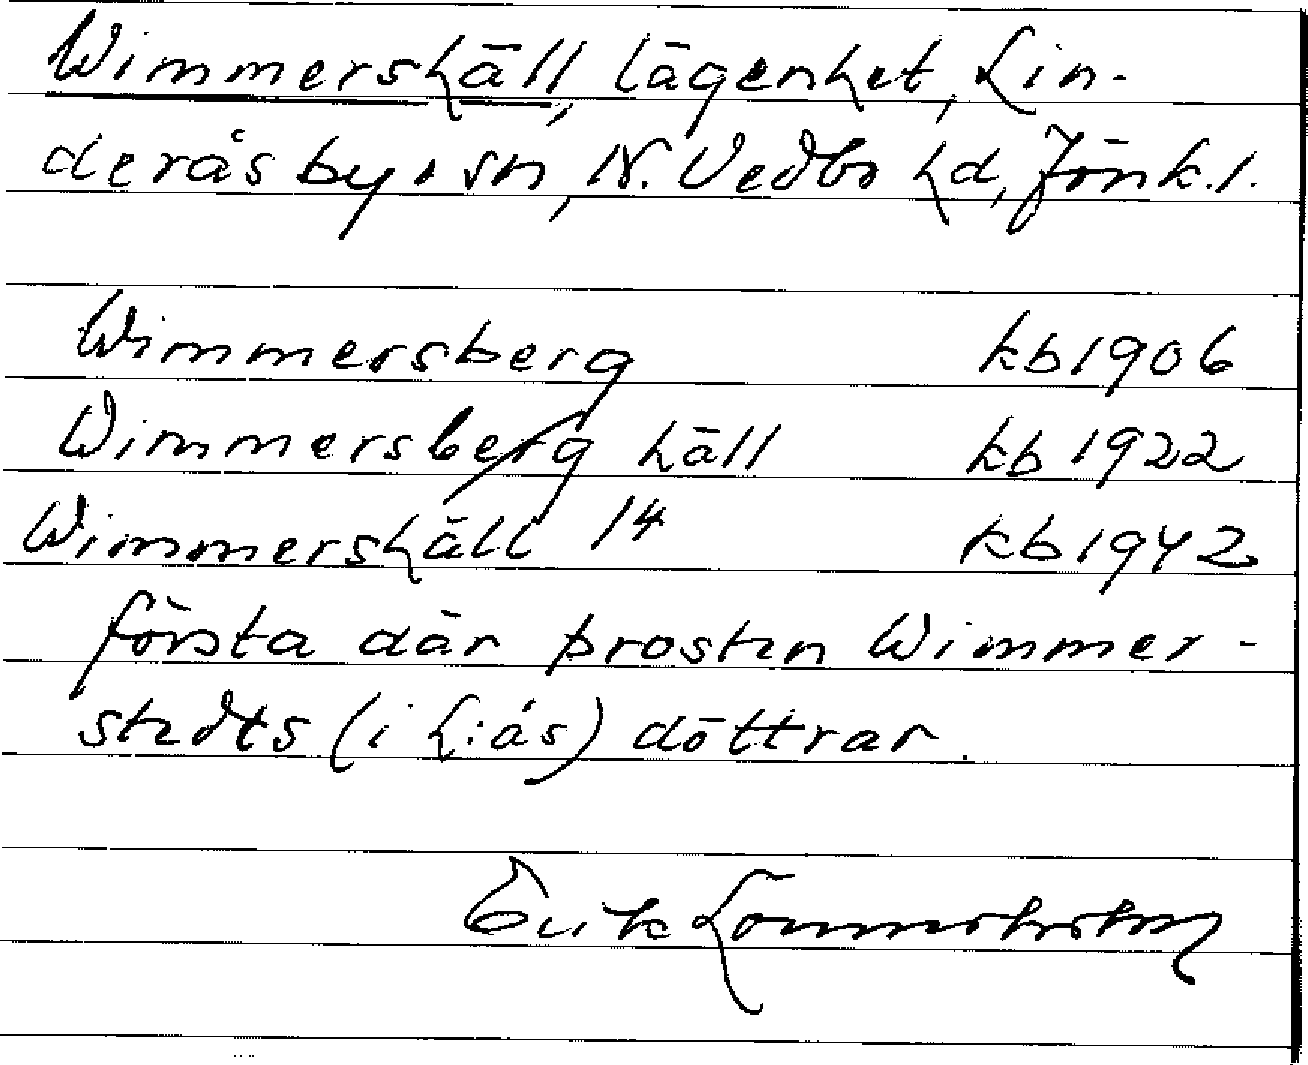 Wimmershäll, lägenhet, Lin-
derås by o sn, N. Vedbo hd, Jönk. l.
Wimmersberg kb 1906
Wimmersberg häll kb 1922
Wimmershäll 14 kb 1942
första där prosten Wimmer-
stedts (i L:ås) döttrar.
Erik